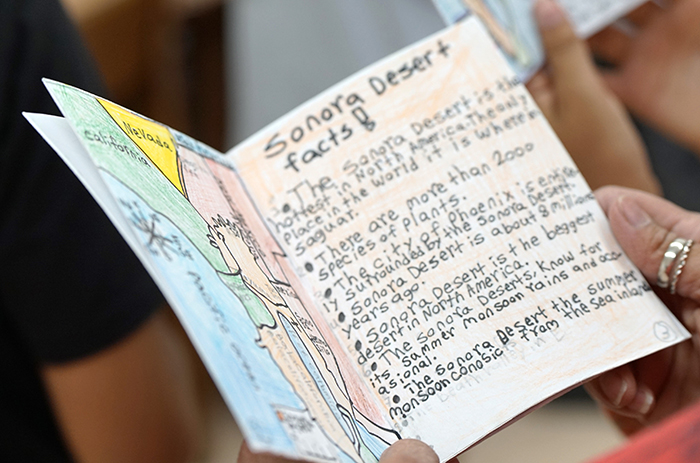 Nevada
California
Sonora Desert
facts!
• The Sonora Desert is the
hottest in North America. The only
place in the world it is where
saguar.
• There are more than 2000
species of plants.
• The city of Phoenix is entire
ly surrounded by the Sonora Desert.
• Sonora Desert is about 8 millions
years ago.
• Sonora Desert is the beggest
desert in North America.
• The Sonora Deserts, Know for
its summer monsoon rains and occ
asional.
• The Sonora Desert the summer
monsoon from the sea inland
2